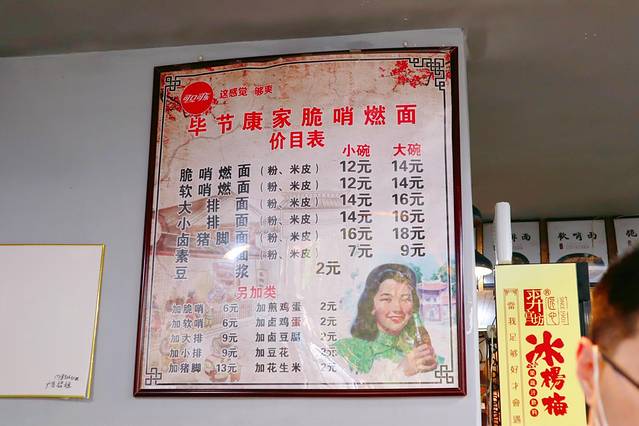 可口可乐
这感觉 够爽
毕节康家脆哨燃面
价目表
小碗 大碗
脆哨燃面（粉、米皮） 12元 14元
软哨燃面（粉、米皮） 12元 14元
大排面（粉、米皮） 14元 16元
小排面（粉、米皮） 14元 16元
卤猪脚面（粉、米皮） 16元 18元
素面（粉、米皮） 7元 9元
豆浆 2元
另加类
加脆哨 6元 加煎鸡蛋 2元
加软哨 6元 加卤鸡蛋 2元
加大排 9元 加卤豆腐 2元
加小排 9元 加豆花 2元
加猪脚 13元 加花生米 2元
排面
软哨面
當我足够好才會遇
冰楞梅